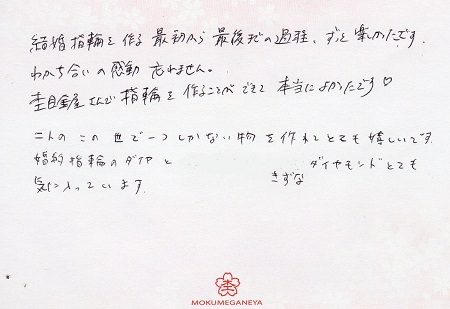 結婚指輪を作る最初から最後までの過程、ずっと楽しかったです。
わかち合いの感動忘れません。
杢目金屋さんで指輪を作ることができて本当によかったです♡
二人のこの世で一つしかない物を作れてとても嬉しいです。
婚約指輪のダイヤと きずな ダイヤモンドとても
気に入っています。
杢
MOKUMEGANEYA